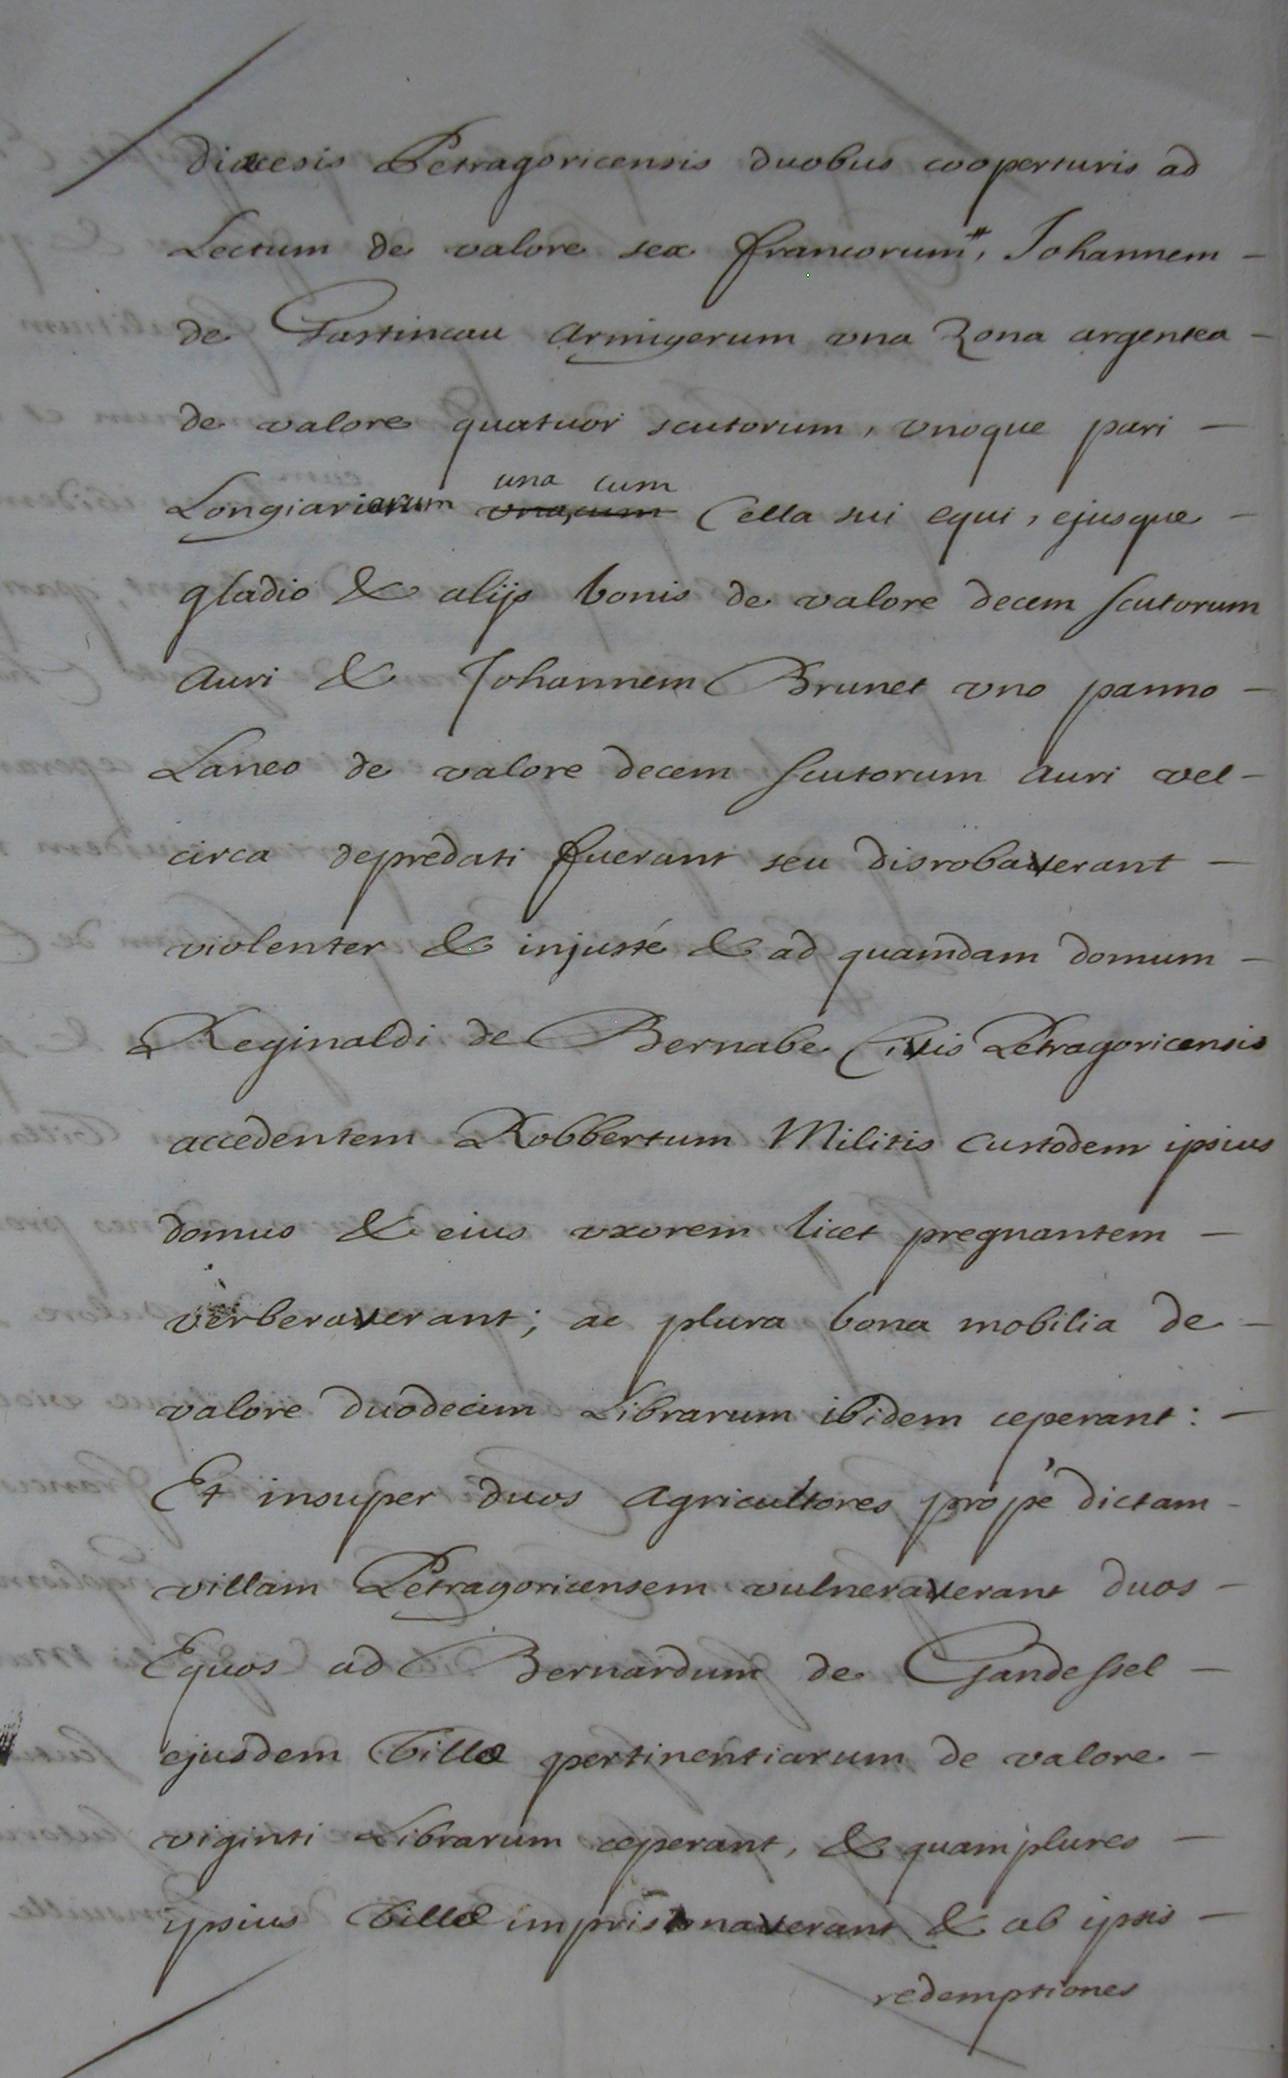 diœcesis Petragoricensis duobus cooperturis ad
Lectum de valore sex francorum, Johannem -
de Pastineau armigerum vna Zona argentea -
de valore quatuor scutorum, vnoque pari -
una cum
Longiariarum vna cum Cella sui equi, ejusque -
gladio & alijs bonis de valore decem scutorum
auri & Johannem Brunet vno panno -
Laneo de valore decem scutorum auri vel -
circa depredati fuerant seu disrobaverant -
violenter & injusté & ad quamdam domum -
Reginaldi de Bernabe Civis Petragoricensis
accedentem Robbertum Militis custodem ipsius
domus & eius vxorem licet pregnantem -
verberaverant; ac plura bona mobilia de -
valore duodecim Librarum ibidem ceperant: -
Et insuper duos agricultores propè dictam -
villam Petragoricensem vulneraverant duos -
Equos ad Bernardum de Gandessel -
ejusdem Villæ pertinentiarum de valore -
viginti Librarum ceperant, & quamplures -
ipsius Villæ imprisonaverant & ab ipsis -
redemptiones